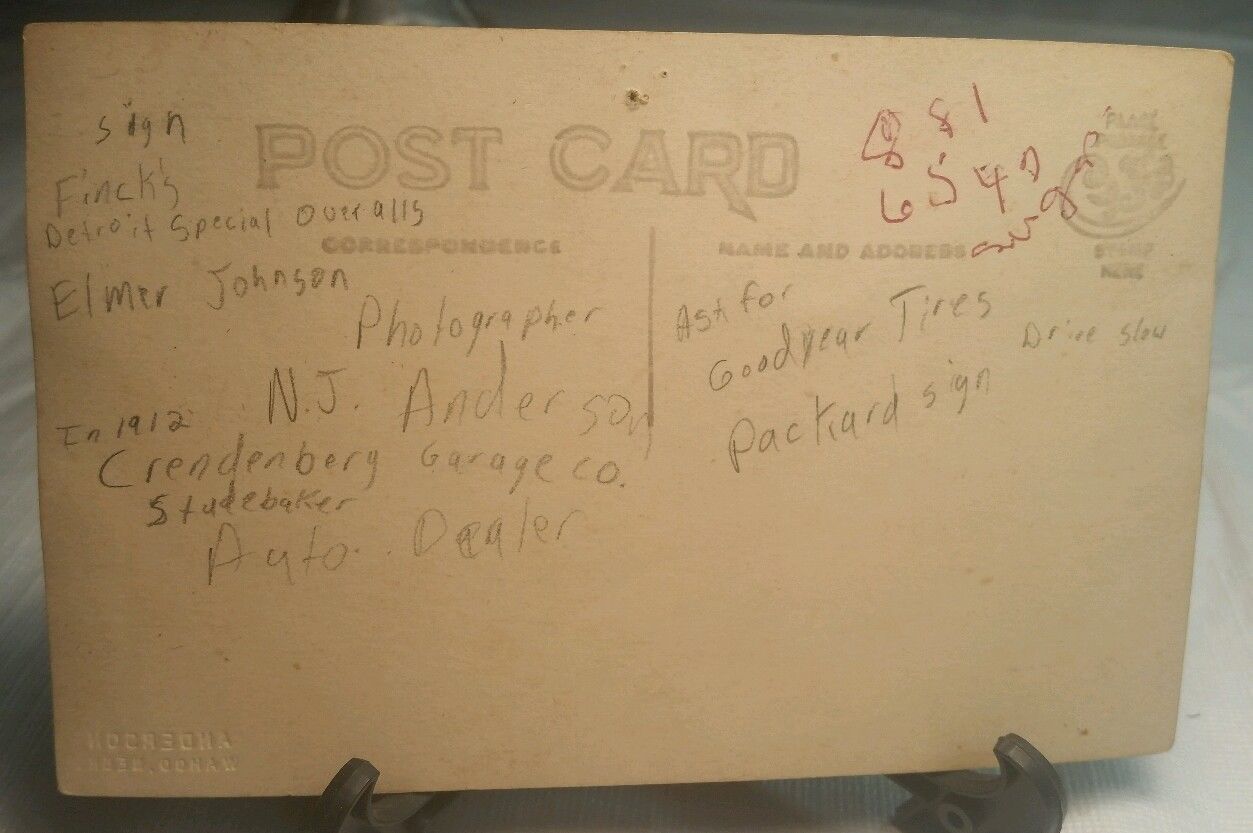 sign
POST CARD
Finck's
Detroit Special Overalls
CORRESPONDENCE
NAME AND ADDRESS
881
654
PLACE
STAMP
HERE
Elmer Johnson
Photographer
N.J. Anderson
In 1912
Crendenberg Garage co.
Studebaker
Auto. Dealer
Ask for
Goodyear Tires
Drive slow
Packard sign
ANDERSON
WAHOO, NEBR.